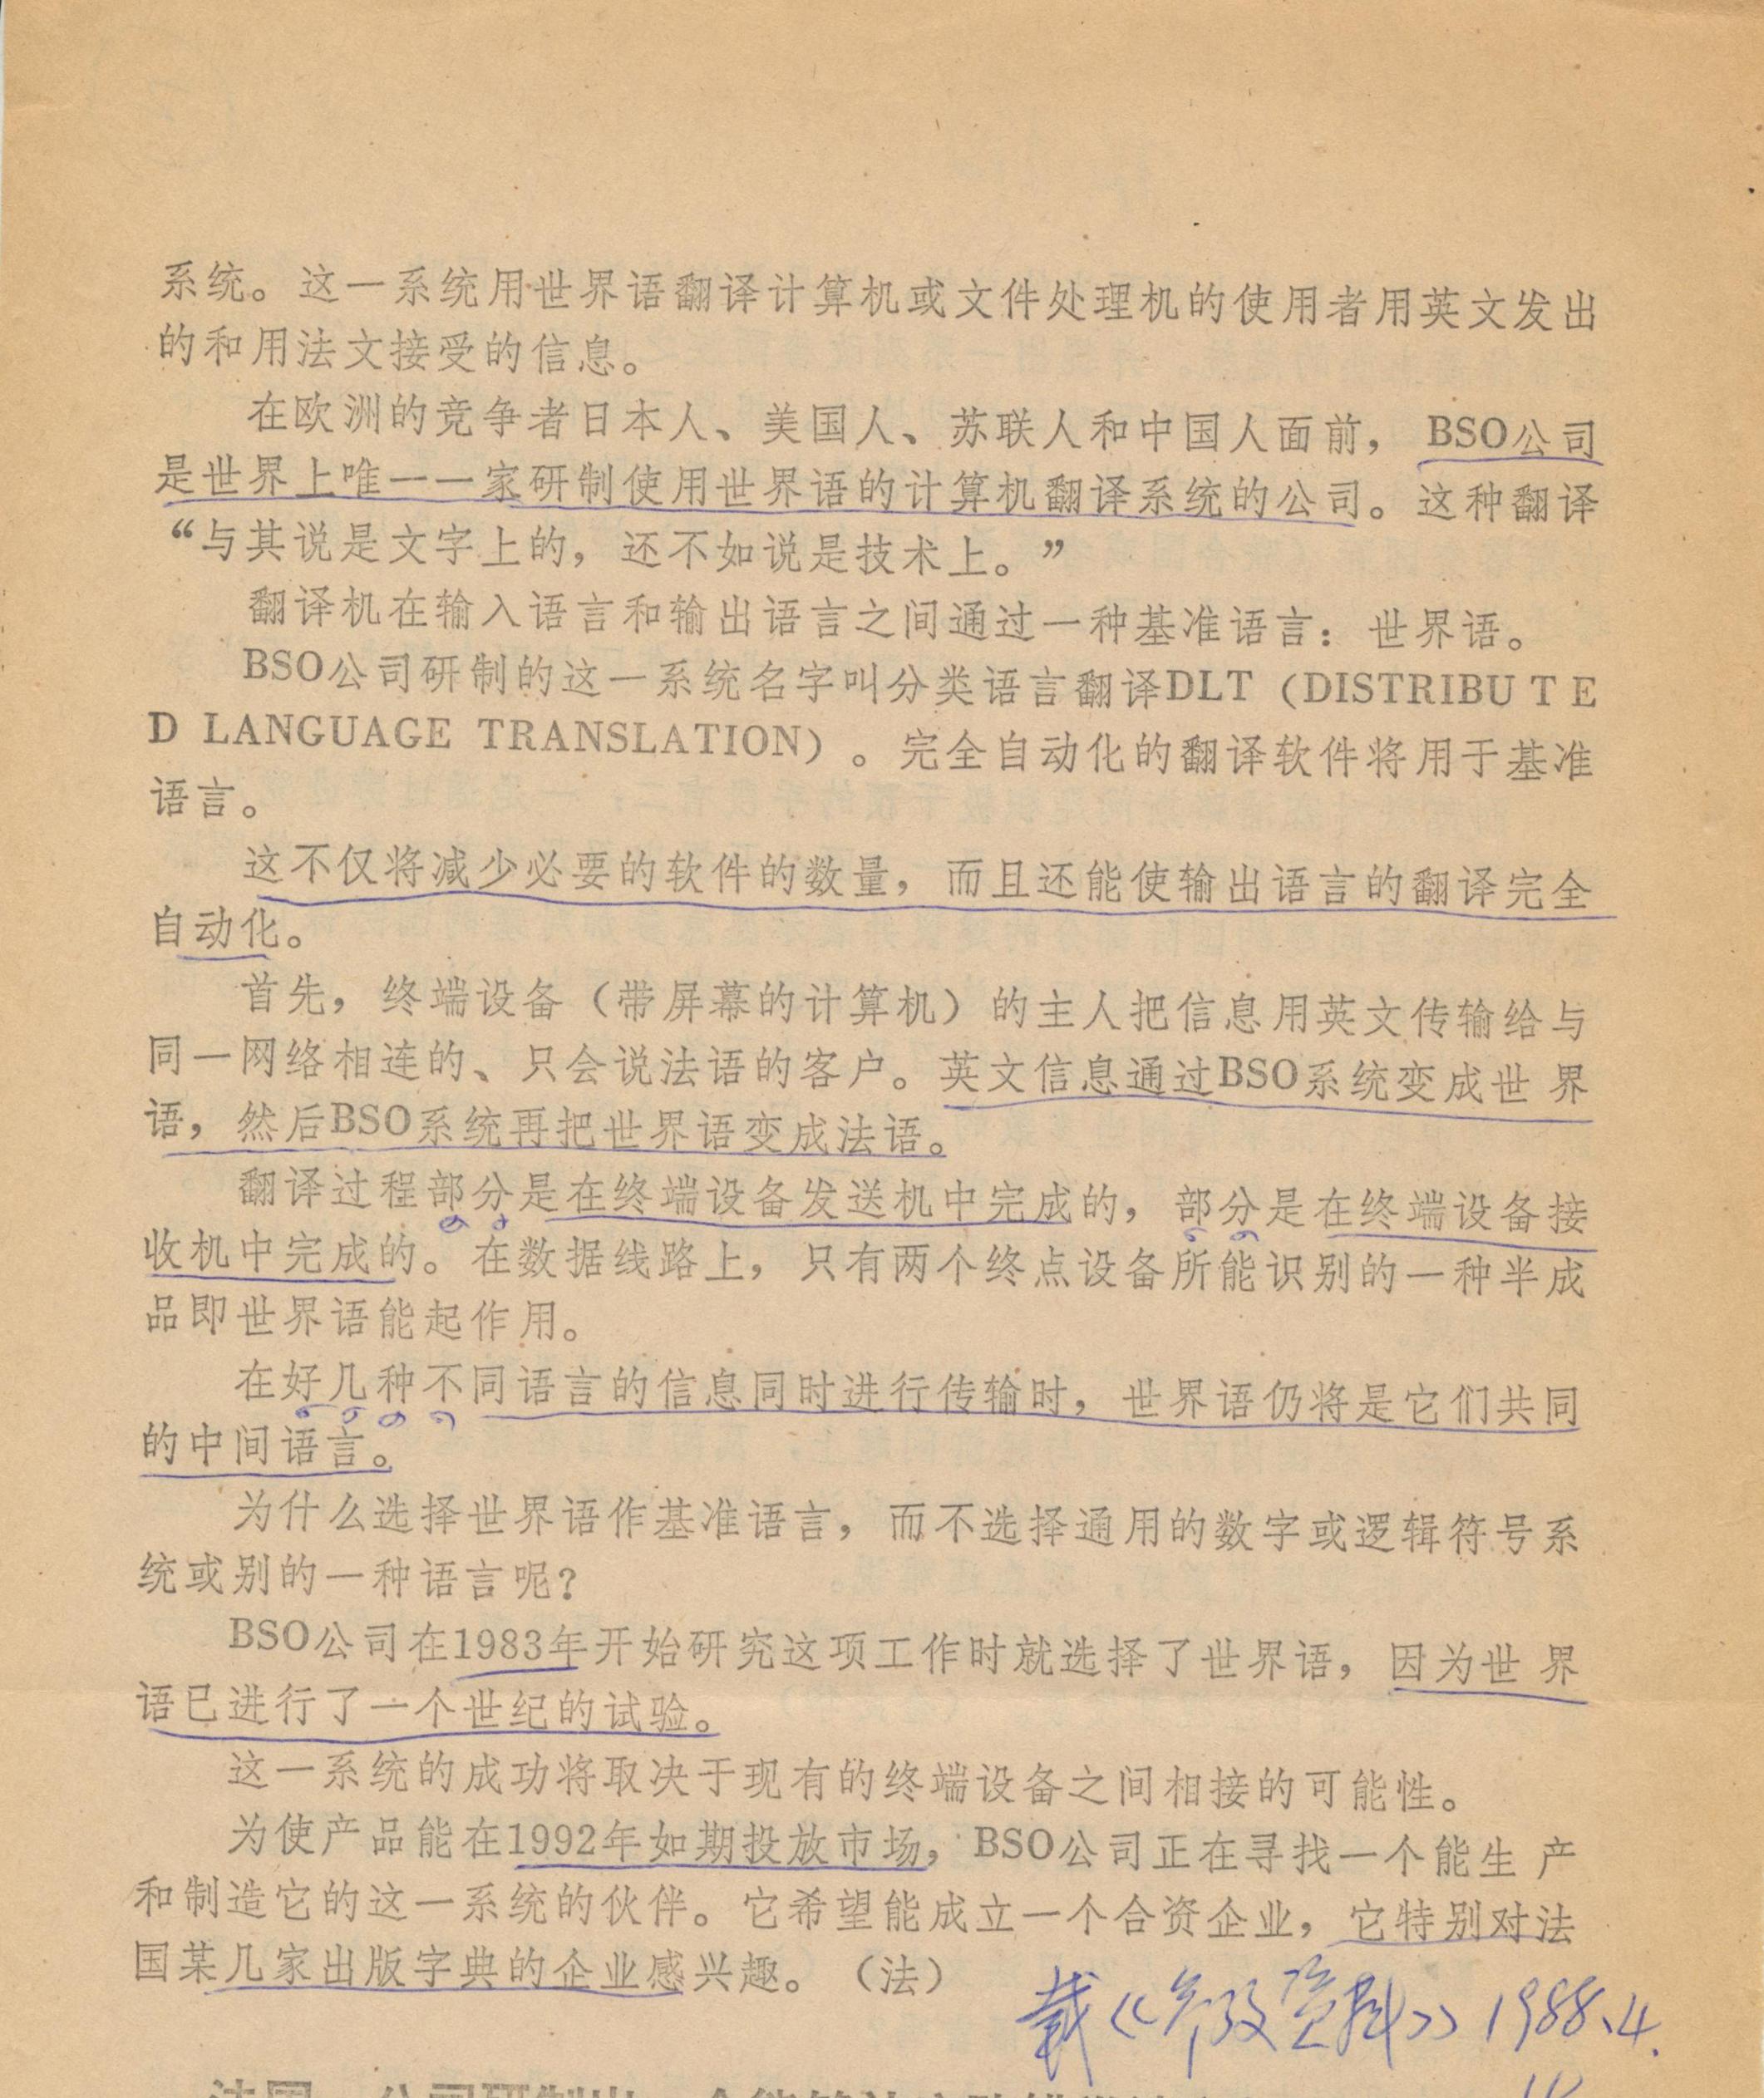 系统。这一系统用世界语翻译计算机或文件处理机的使用者用英文发出
的和用法文接受的信息。
在欧洲的竞争者日本人、美国人、苏联人和中国人面前，BSO公司
是世界上唯一一家研制使用世界语的计算机翻译系统的公司。这种翻译
“与其说是文字上的，还不如说是技术上。”
翻译机在输入语言和输出语言之间通过一种基准语言：世界语。
BSO公司研制的这一系统名字叫分类语言翻译DLT（DISTRIBUTE
D LANGUAGE TRANSLATION）。完全自动化的翻译软件将用于基准
语言。
这不仅将减少必要的软件的数量，而且还能使输出语言的翻译完全
自动化。
首先，终端设备（带屏幕的计算机）的主人把信息用英文传输给与
同一网络相连的、只会说法语的客户。英文信息通过BSO系统变成世界
语，然后BSO系统再把世界语变成法语。
翻译过程部分是在终端设备发送机中完成的，部分是在终端设备接
收机中完成的。在数据线路上，只有两个终点设备所能识别的一种半成
品即世界语能起作用。
在好几种不同语言的信息同时进行传输时，世界语仍将是它们共同
的中间语言。
为什么选择世界语作基准语言，而不选择通用的数字或逻辑符号系
统或别的一种语言呢？
BSO公司在1983年开始研究这项工作时就选择了世界语，因为世界
语已进行了一个世纪的试验。
这一系统的成功将取决于现有的终端设备之间相接的可能性。
为使产品能在1992年如期投放市场，BSO公司正在寻找一个能生产
和制造它的这一系统的伙伴。它希望能成立一个合资企业，它特别对法
国某几家出版字典的企业感兴趣。（法）
载《参改资料》1988.4.